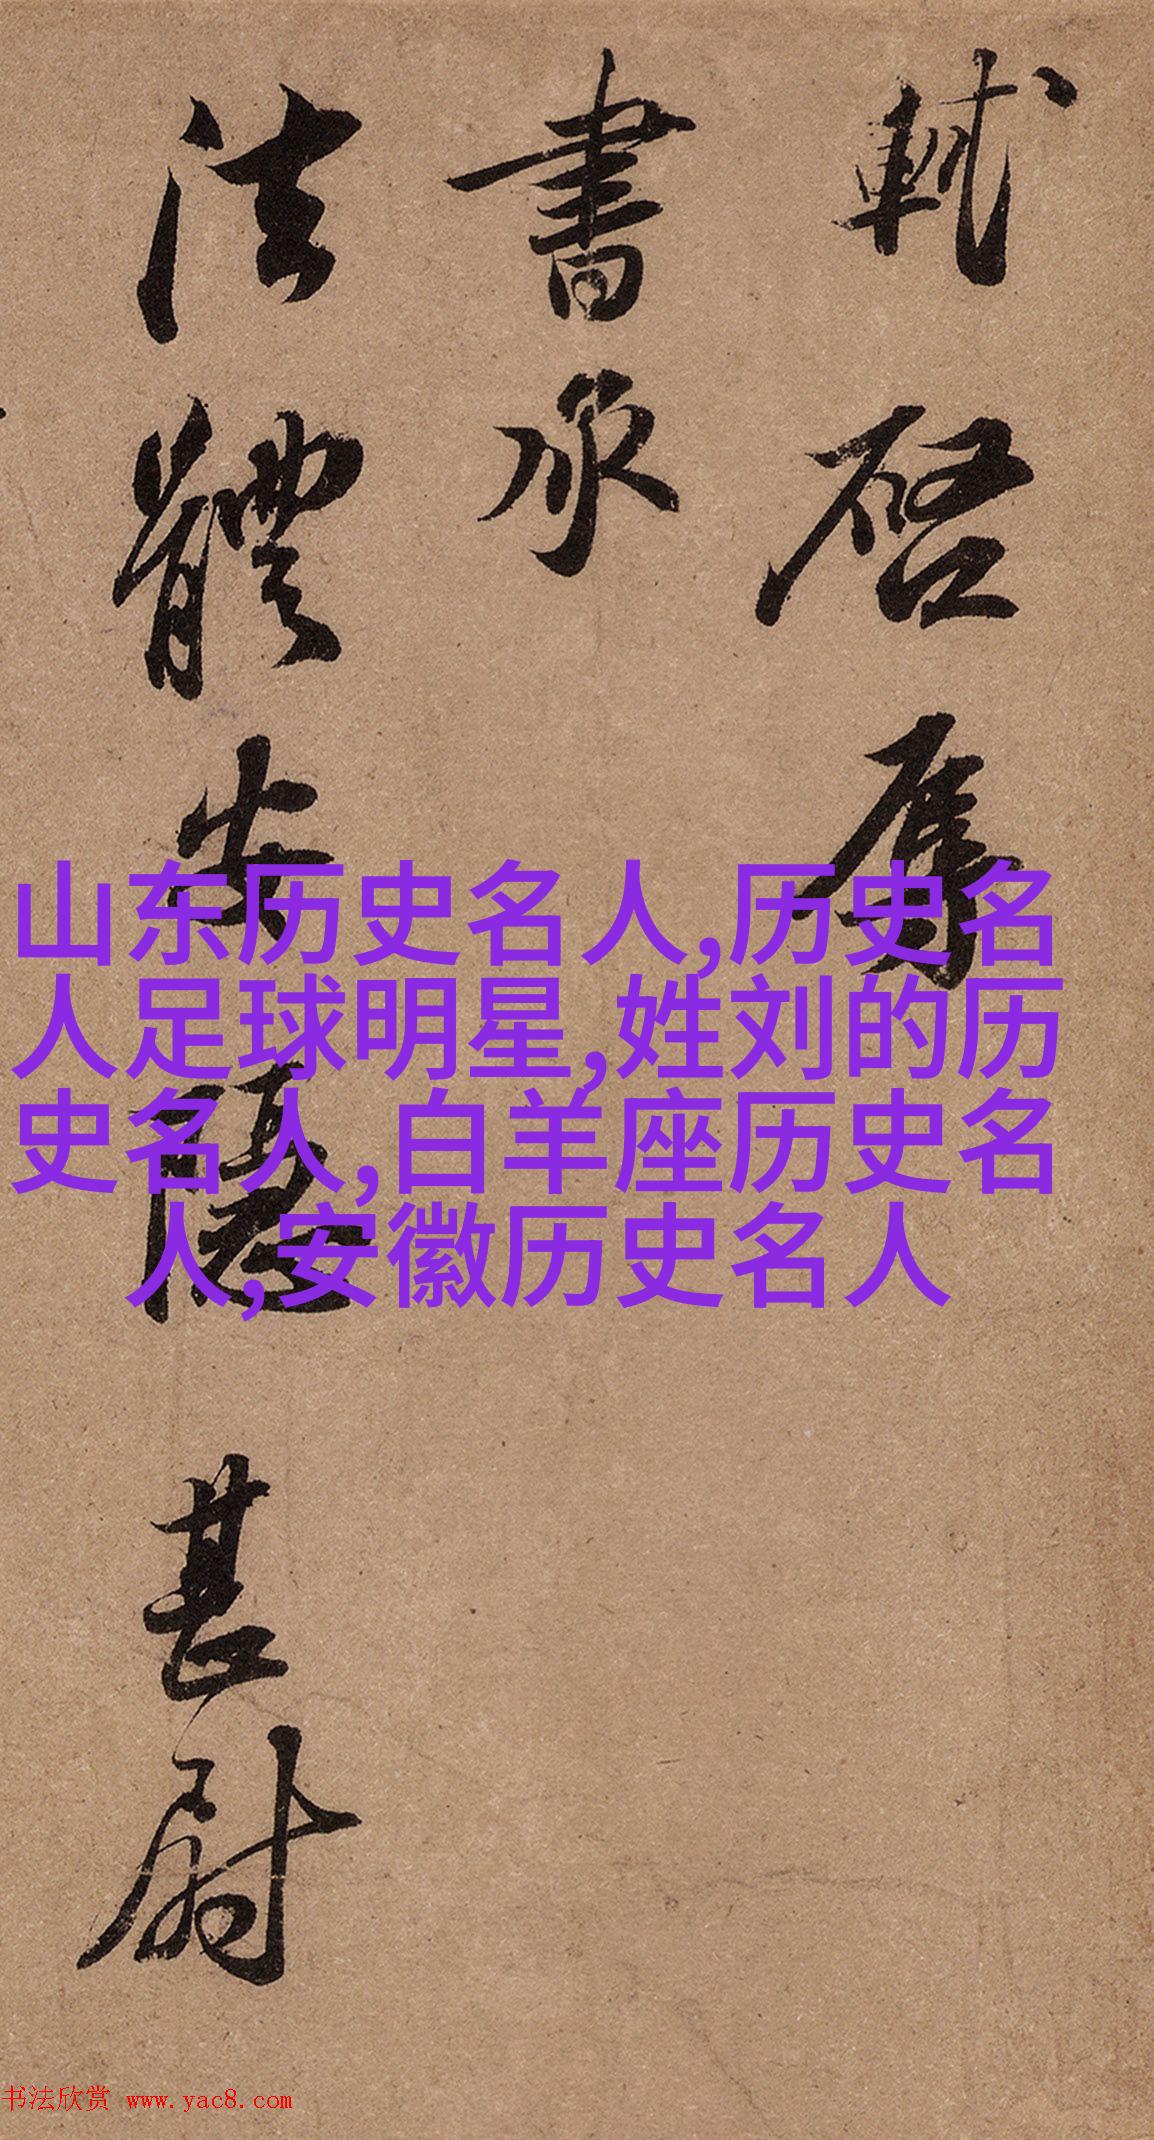 軾啓辱
書承
法體安隱甚尉
山东历史名人,历史名
人足球明星,姓刘的历
史名人,白羊座历史名
人,安徽历史名人
书法欣赏 www.yac8.com